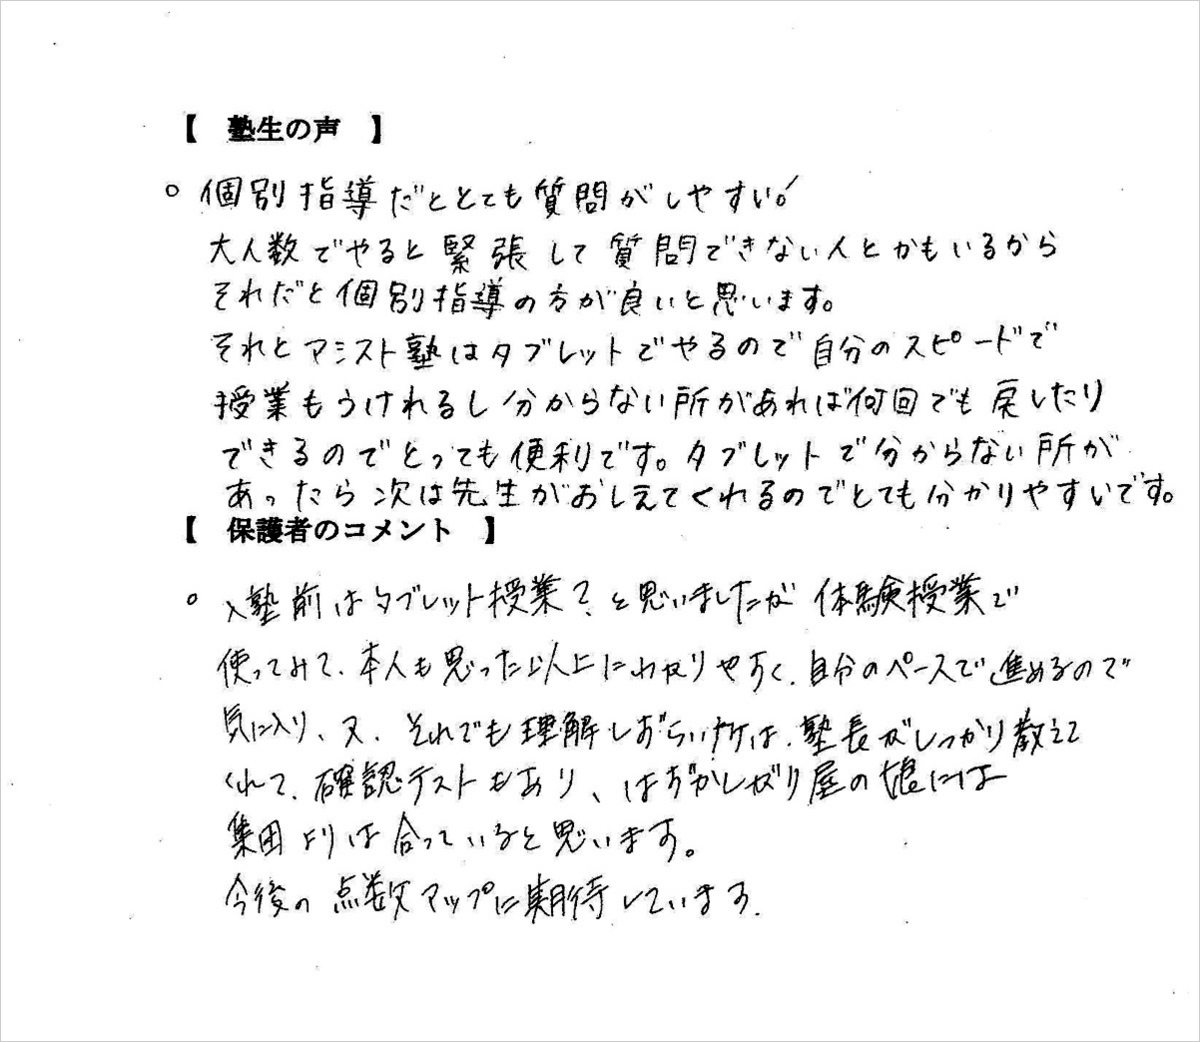 【 塾生の声 】
○ 個別指導だととても質問がしやすい!
大人数でやると緊張して質問できない人とかもいるから
それだと個別指導の方が良いと思います。
それとアシスト塾はタブレットでやるので自分のスピードで
授業もうけれるし分からない所があれば何回でも戻したり
できるのでとっても便利です。タブレットで分からない所が
あったら次は先生がおしえてくれるのでとても分かりやすいです。
【 保護者のコメント 】
○ 入塾前はタブレット授業?と思いましたが体験授業で
使ってみて、本人も思った以上にわかりやすく、自分のペースで進めるので
気に入り、又、それでも理解しずらい所は、塾長がしっかり教えて
くれて、確認テストもあり、はずかしがり屋の娘には
集団よりは合っていると思います。
今後の点数アップに期待しています.